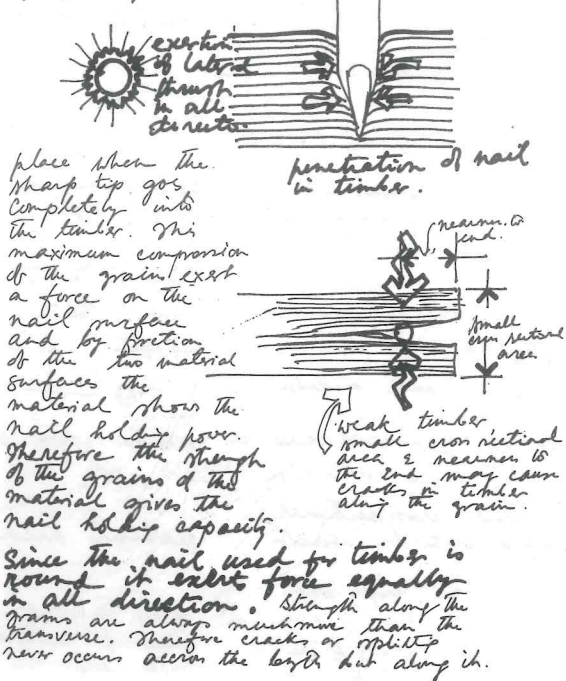 exertion
of lateral
through
in all
directio
penetration of nail
in timber.
place when the
sharp tip gos
completely into
the timber. This
maximum compression
of the grains exert
a force on the
nail surface
and by friction
of the two material
surfaces the
material shows the
nail holding power.
Therefore the strength
of the grains of the
material gives the
nail holding capacity.
nearness to
end.
small
cross sectional
area
weak timber
small cross sectional
area & nearness to
the end may cause
cracks in timber
along the grain.
Since the nail used for timber is
round it exert force equally
in all direction. Strength along the
grains are always much more than the
transverse. Therefore cracks or splitting
never occurs accross the length but along it.